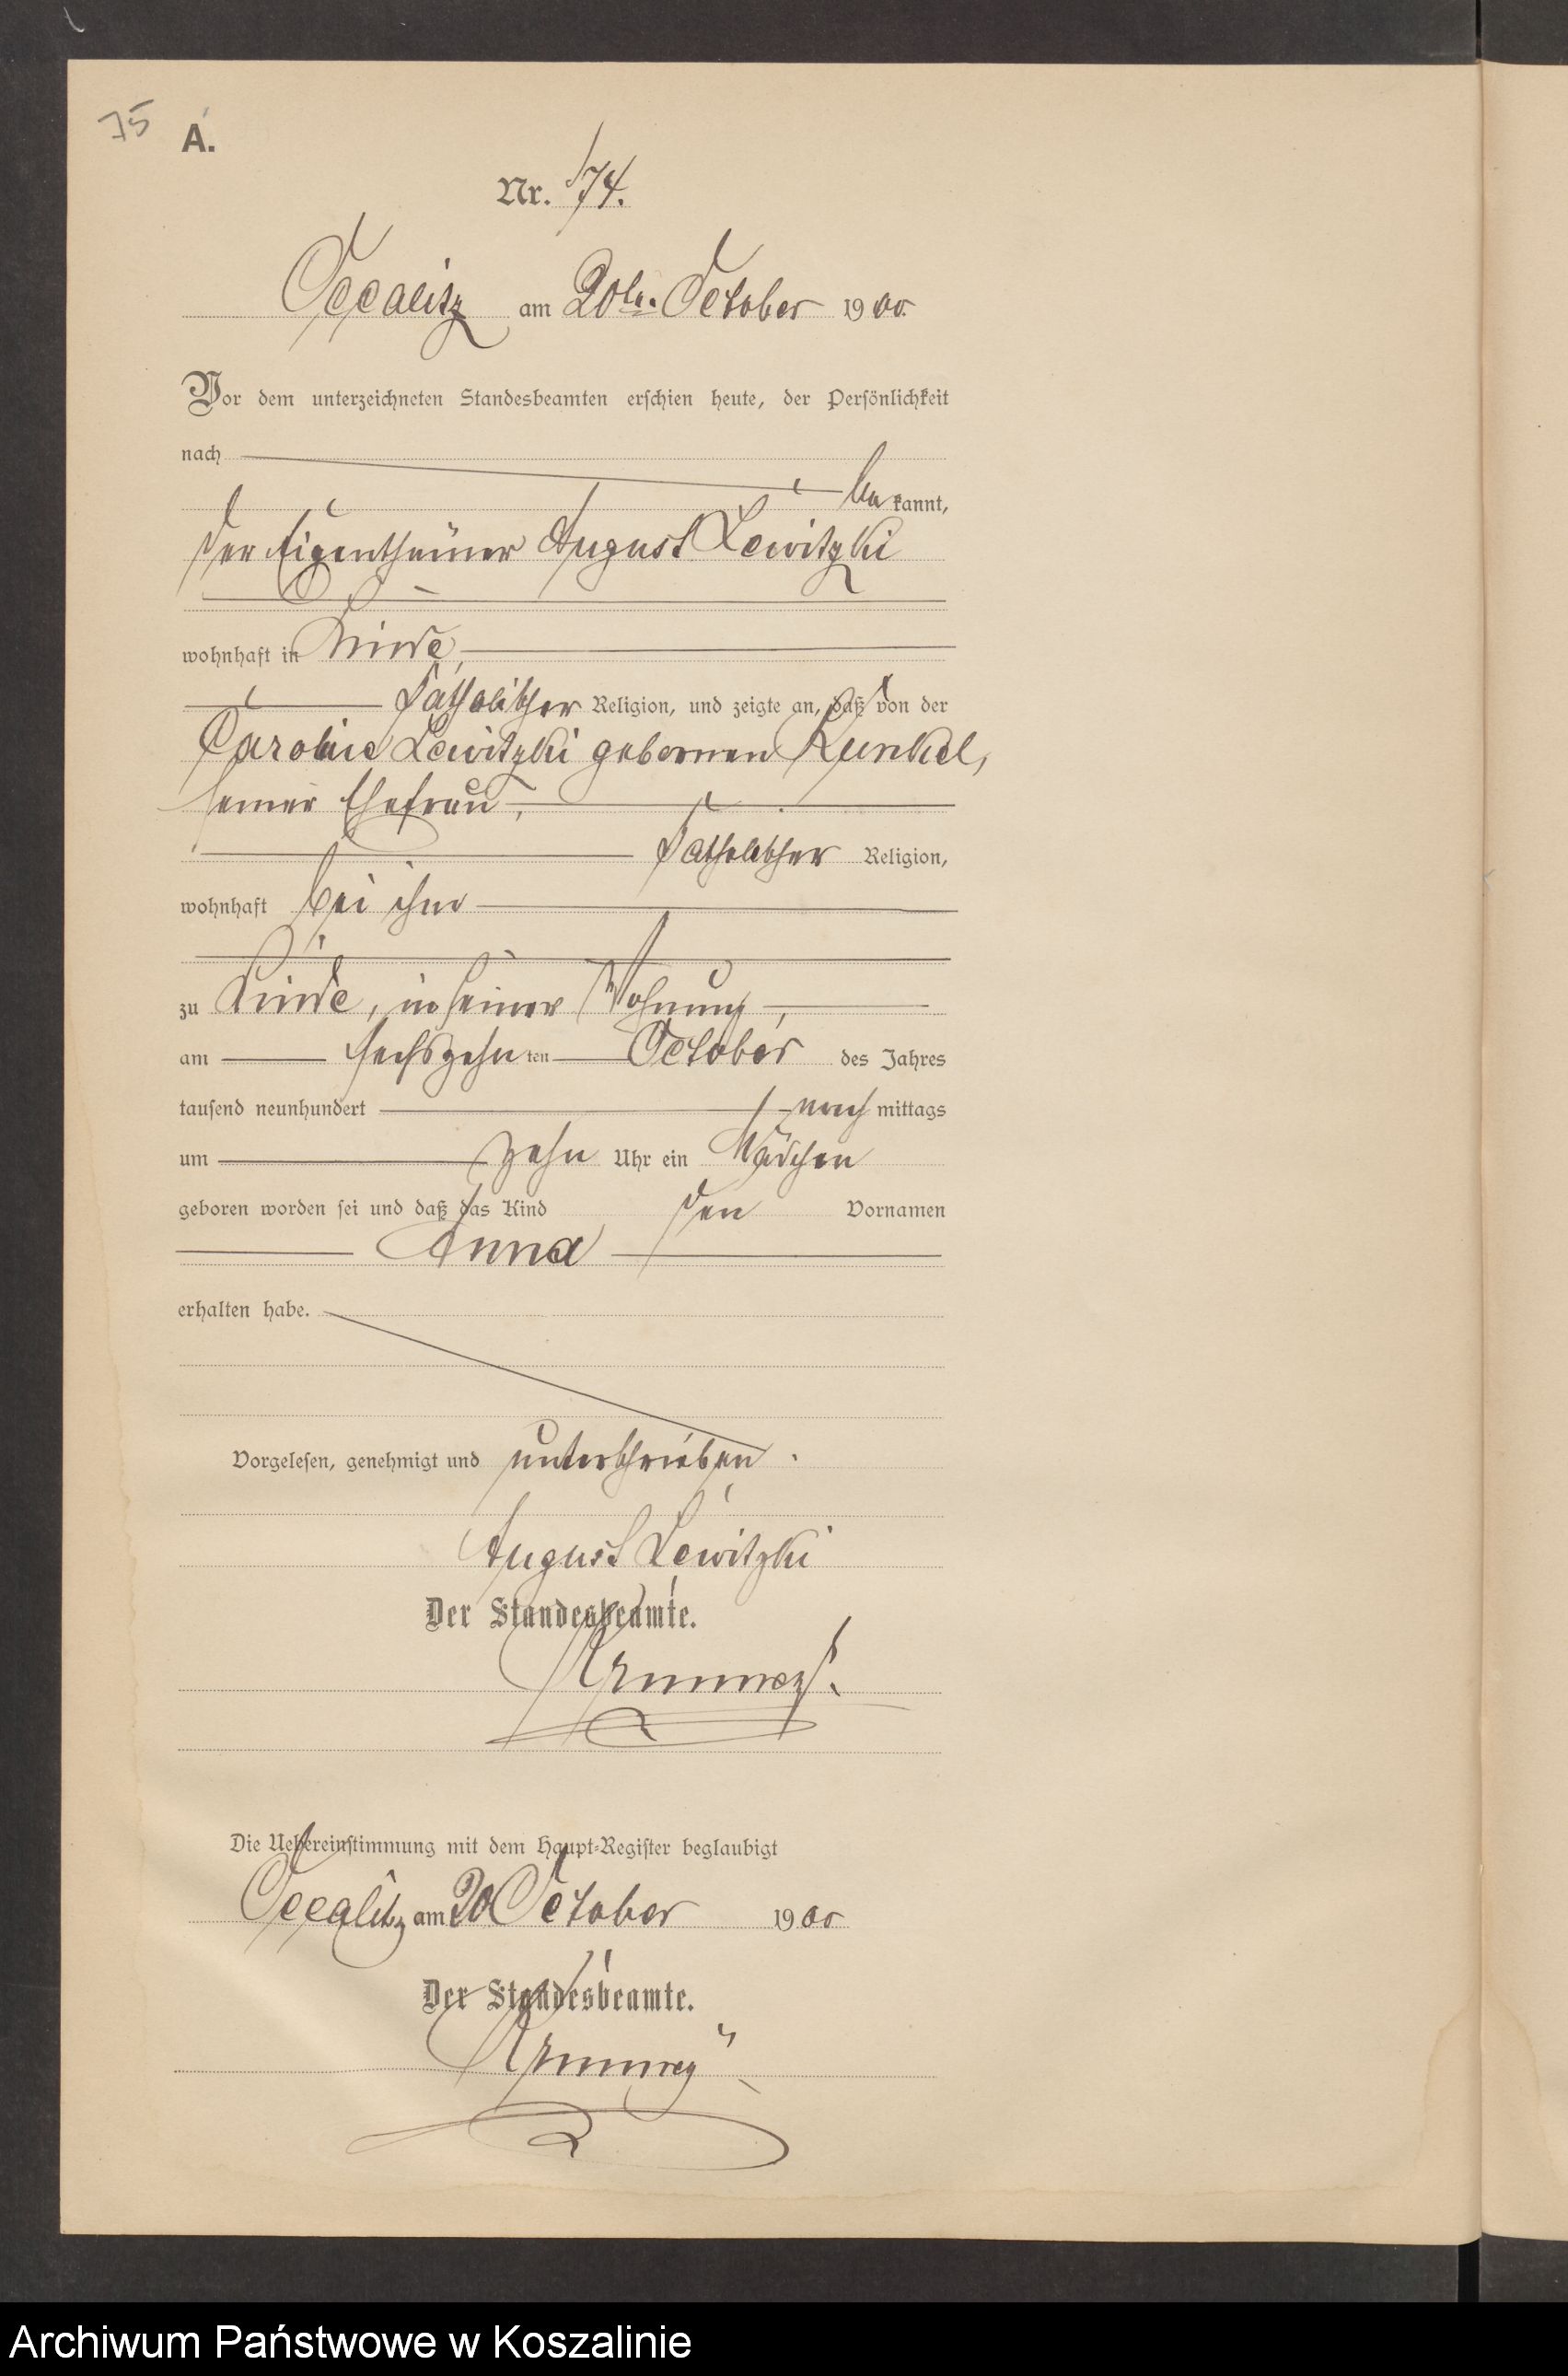 75 A.
Nr. 74.
Occalitz am 20ten October 1900.
Vor dem unterzeichneten Standesbeamten erschien heute, der Persönlichkeit
nach
be kannt,
der Eigenthümer August Lewitzki
wohnhaft in Linde,
katholischer Religion, und zeigte an, daß von der
Caroline Lewitzki gebornen Kunkel,
seiner Ehefrau,
katholischer Religion,
wohnhaft bei ihm
zu Linde, in seiner Wohnung,
am sechszehn ten October des Jahres
tausend neunhundert nach mittags
um zehn Uhr ein Mädchen
geboren worden sei und daß das Kind den Vornamen
Anna
erhalten habe.
Vorgelesen, genehmigt und unterschrieben.
August Lewitzki
Der Standesbeamte.
Die Uebereinstimmung mit dem Haupt-Register beglaubigt
Occalitz am 20 October 1900
Der Standesbeamte.
Archiwum Państwowe w Koszalinie